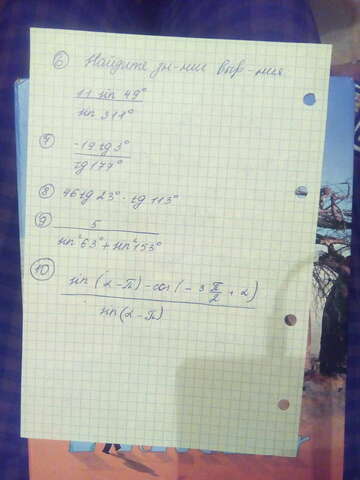 ⑥ Найдите зн-ние выр-ния
11 sin 49°
sin 311°
⑦ -19 tg 3°
tg 177°
⑧ 46 tg 23° · tg 113°
⑨ 5
sin²63° + sin²153°
⑩ sin (α - π) - cos (- 3 π/2 + α)
sin (α - π)